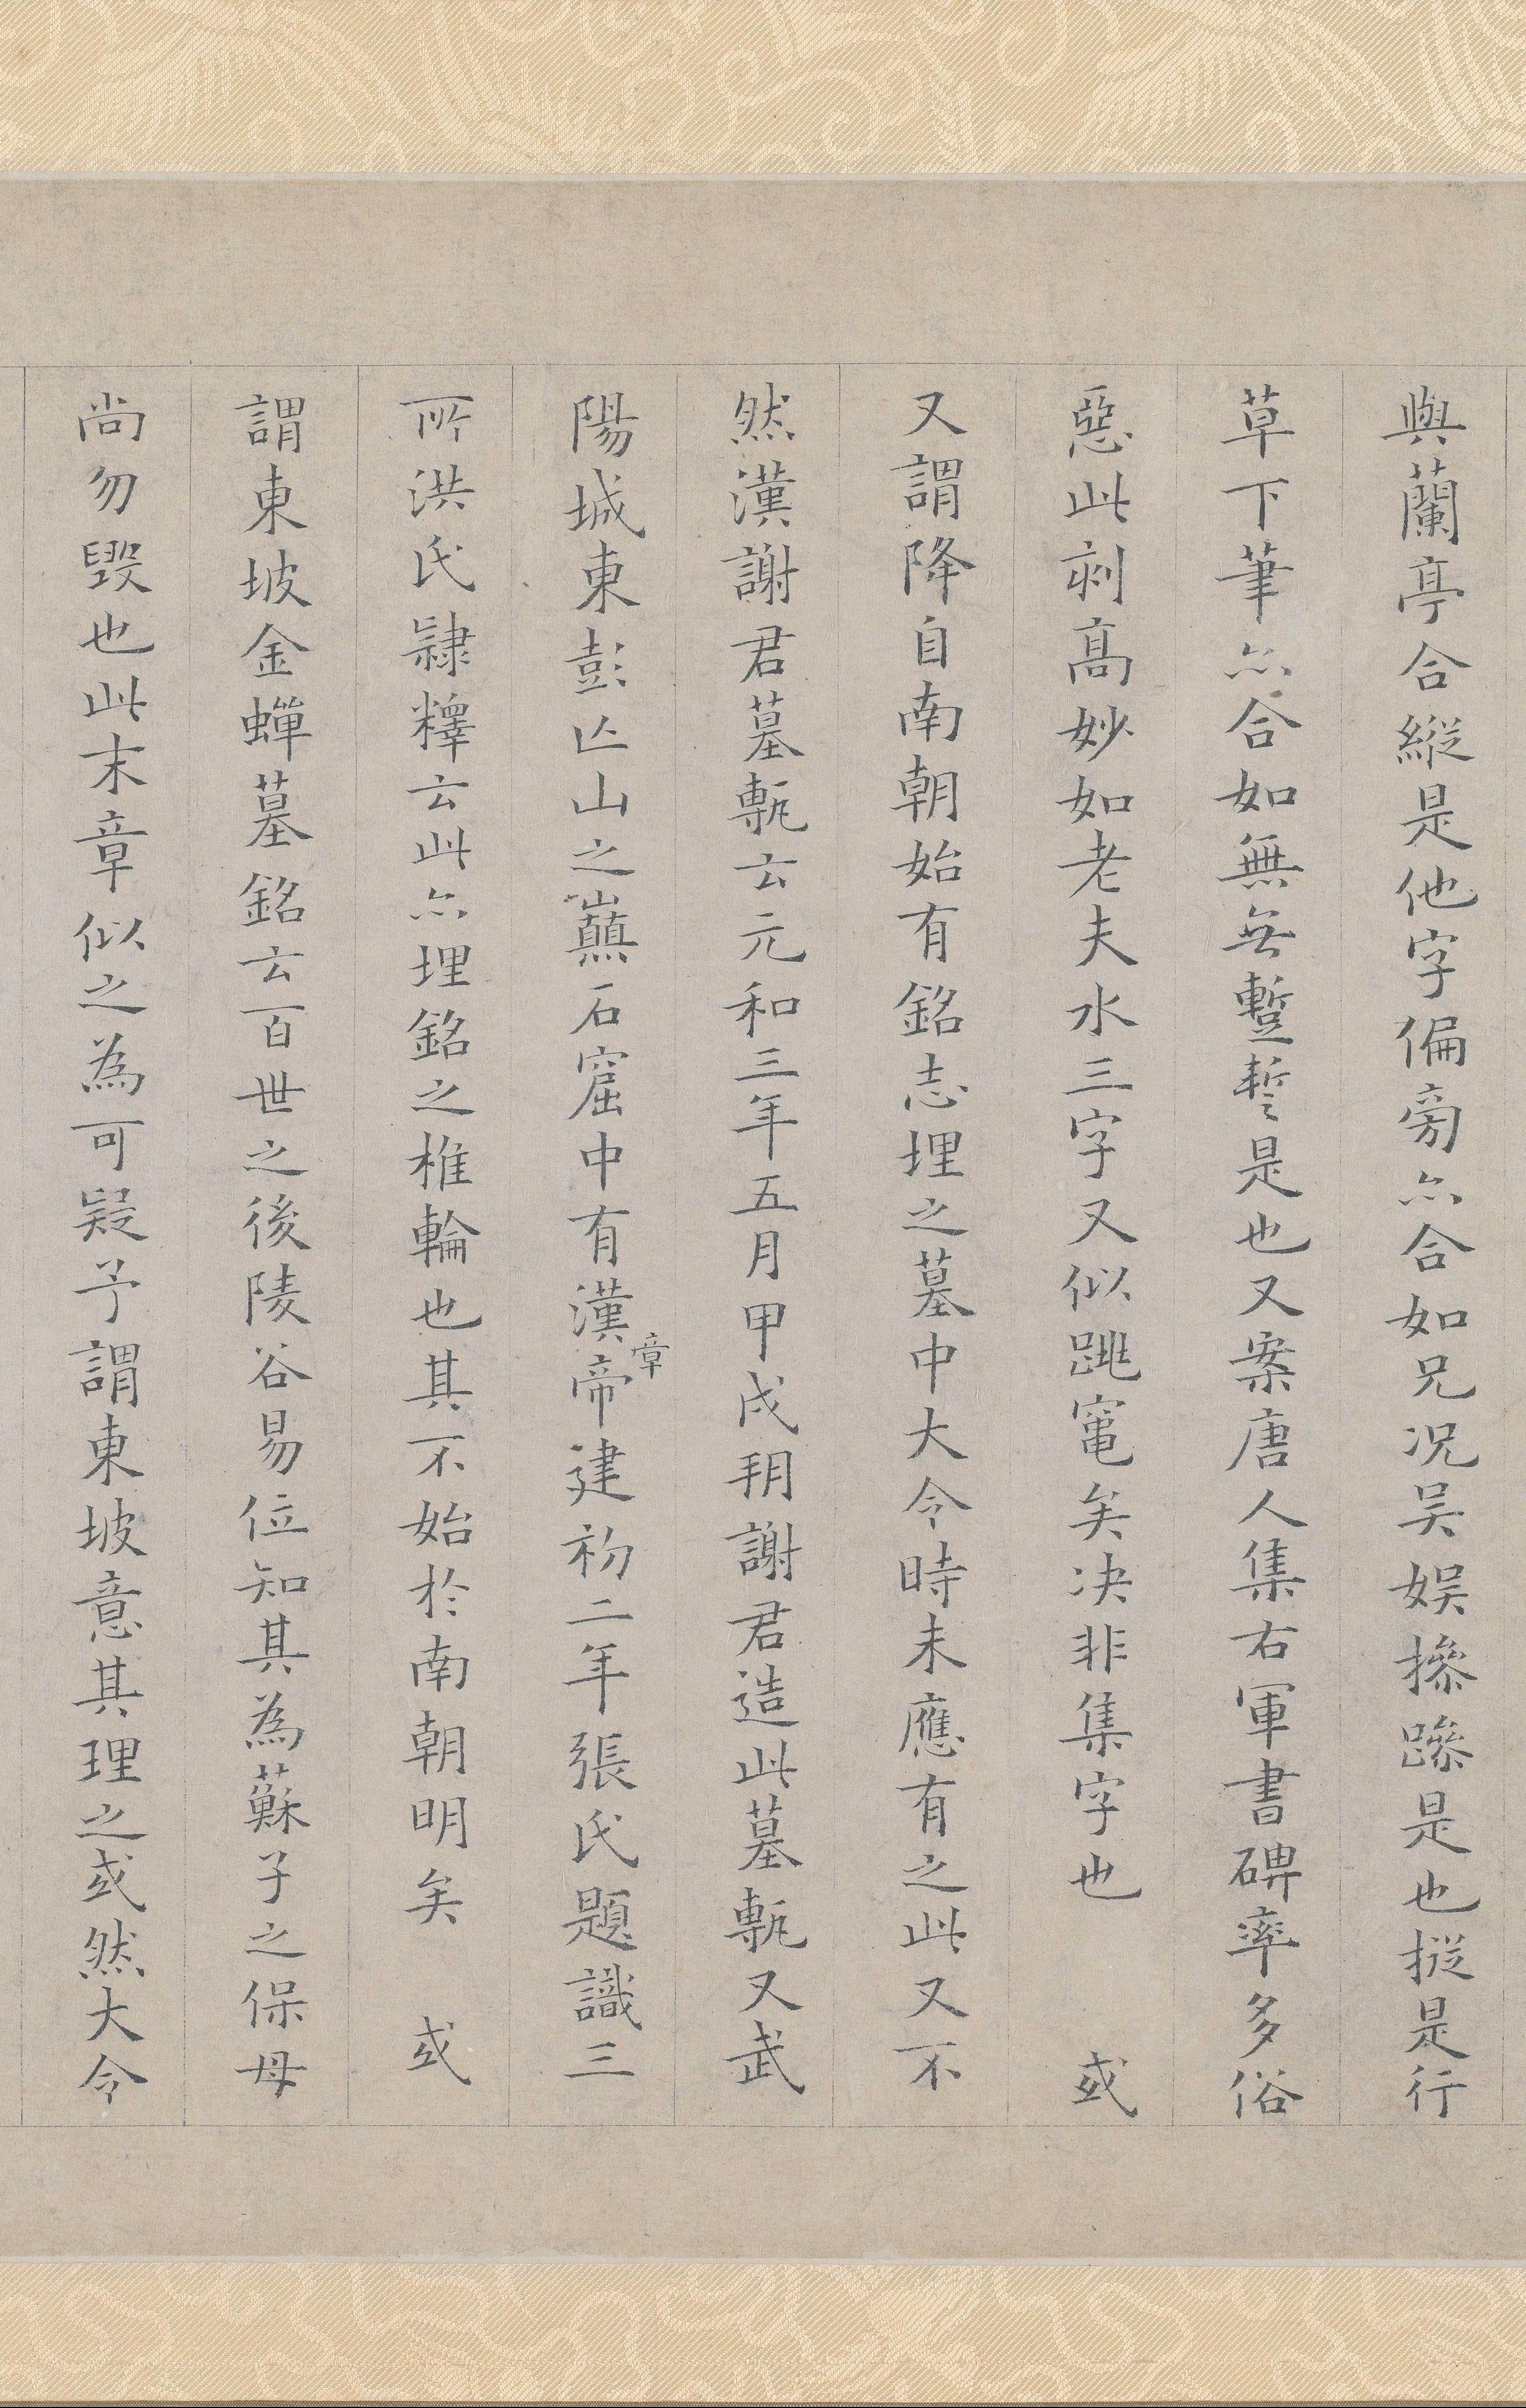 與蘭亭合縱是他字偏旁亦合如兄况吴娱摻蹂是也摐是行
草下筆亦合如無无蹔誓是也又案唐人集右軍書碑率多俗
惡此刻高妙如老夫水三字又似跳竄矣决非集字也　或
又謂降自南朝始有銘志埋之墓中大令時未應有之此又不
然漢謝君墓甎云元和三年五月甲戌朔謝君造此墓甎又武
陽城東彭亾山之巔石窟中有漢章帝建初二年張氏題識三
所洪氏隸釋云此亦埋銘之椎輪也其不始於南朝明矣　或
謂東坡金蟬墓銘云百世之後陵谷易位知其為蘇子之保母
尚勿毀也此末章似之為可疑予謂東坡意其理之或然大令